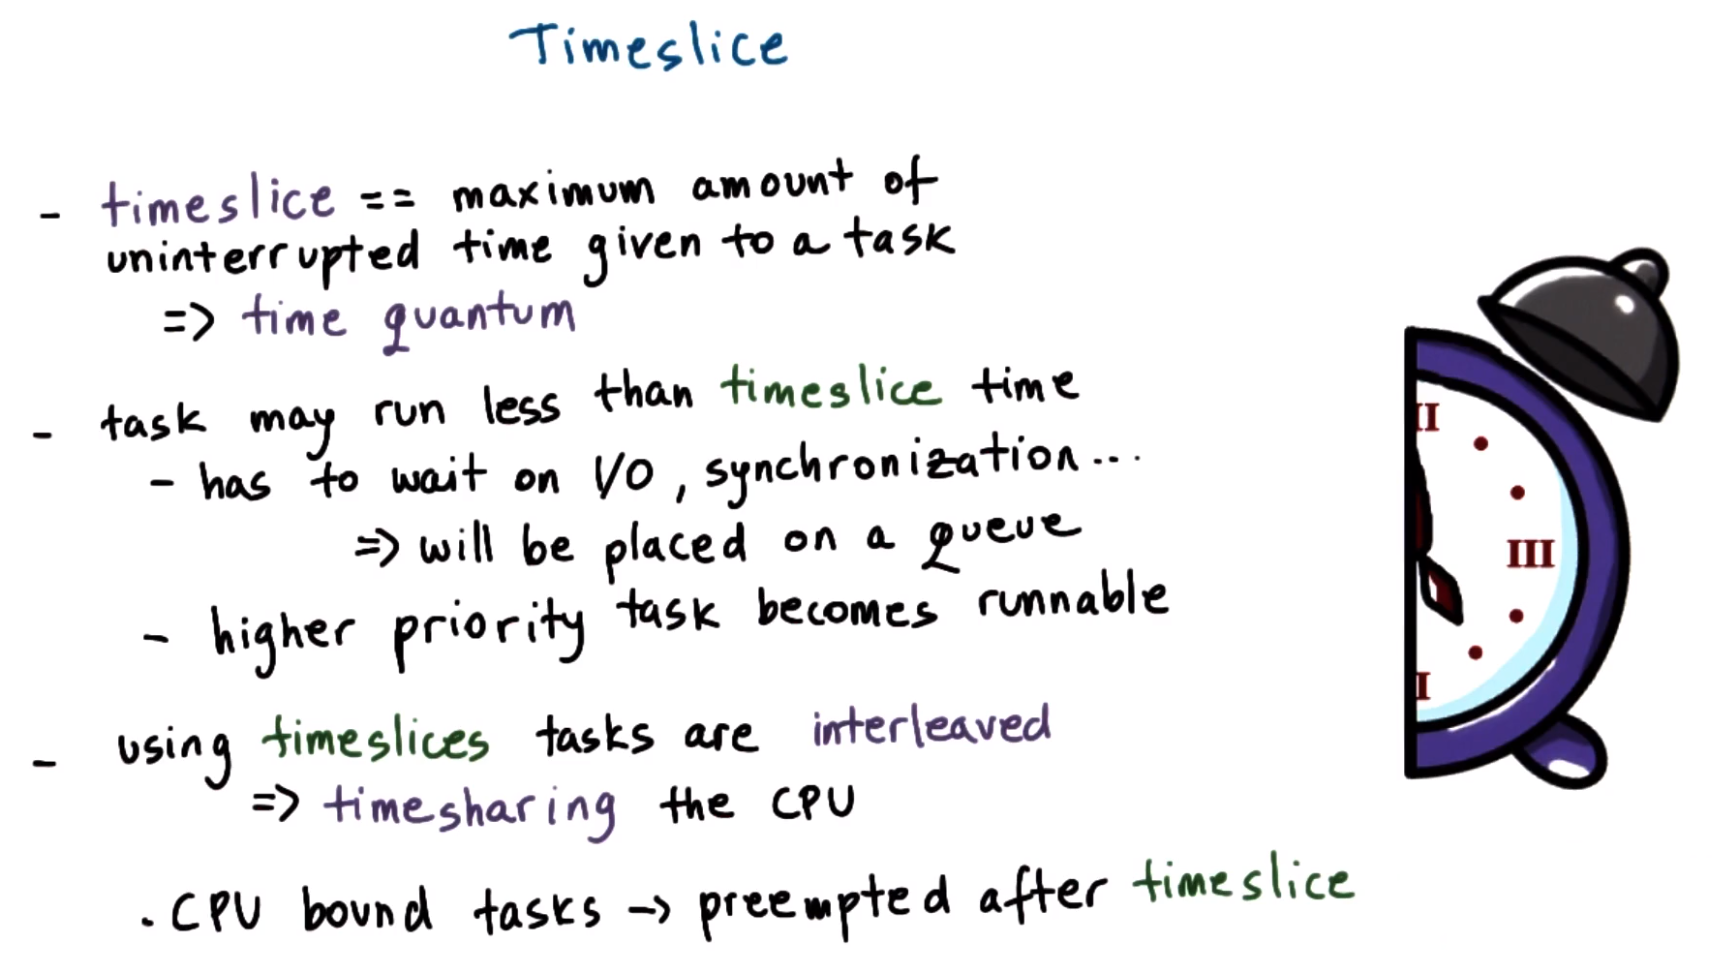 Timeslice
- timeslice == maximum amount of
uninterrupted time given to a task
=> time quantum
- task may run less than timeslice time
- has to wait on I/O, synchronization...
=> will be placed on a queue
- higher priority task becomes runnable
- using timeslices tasks are interleaved
=> timesharing the CPU
. CPU bound tasks -> preempted after timeslice
II
III
I